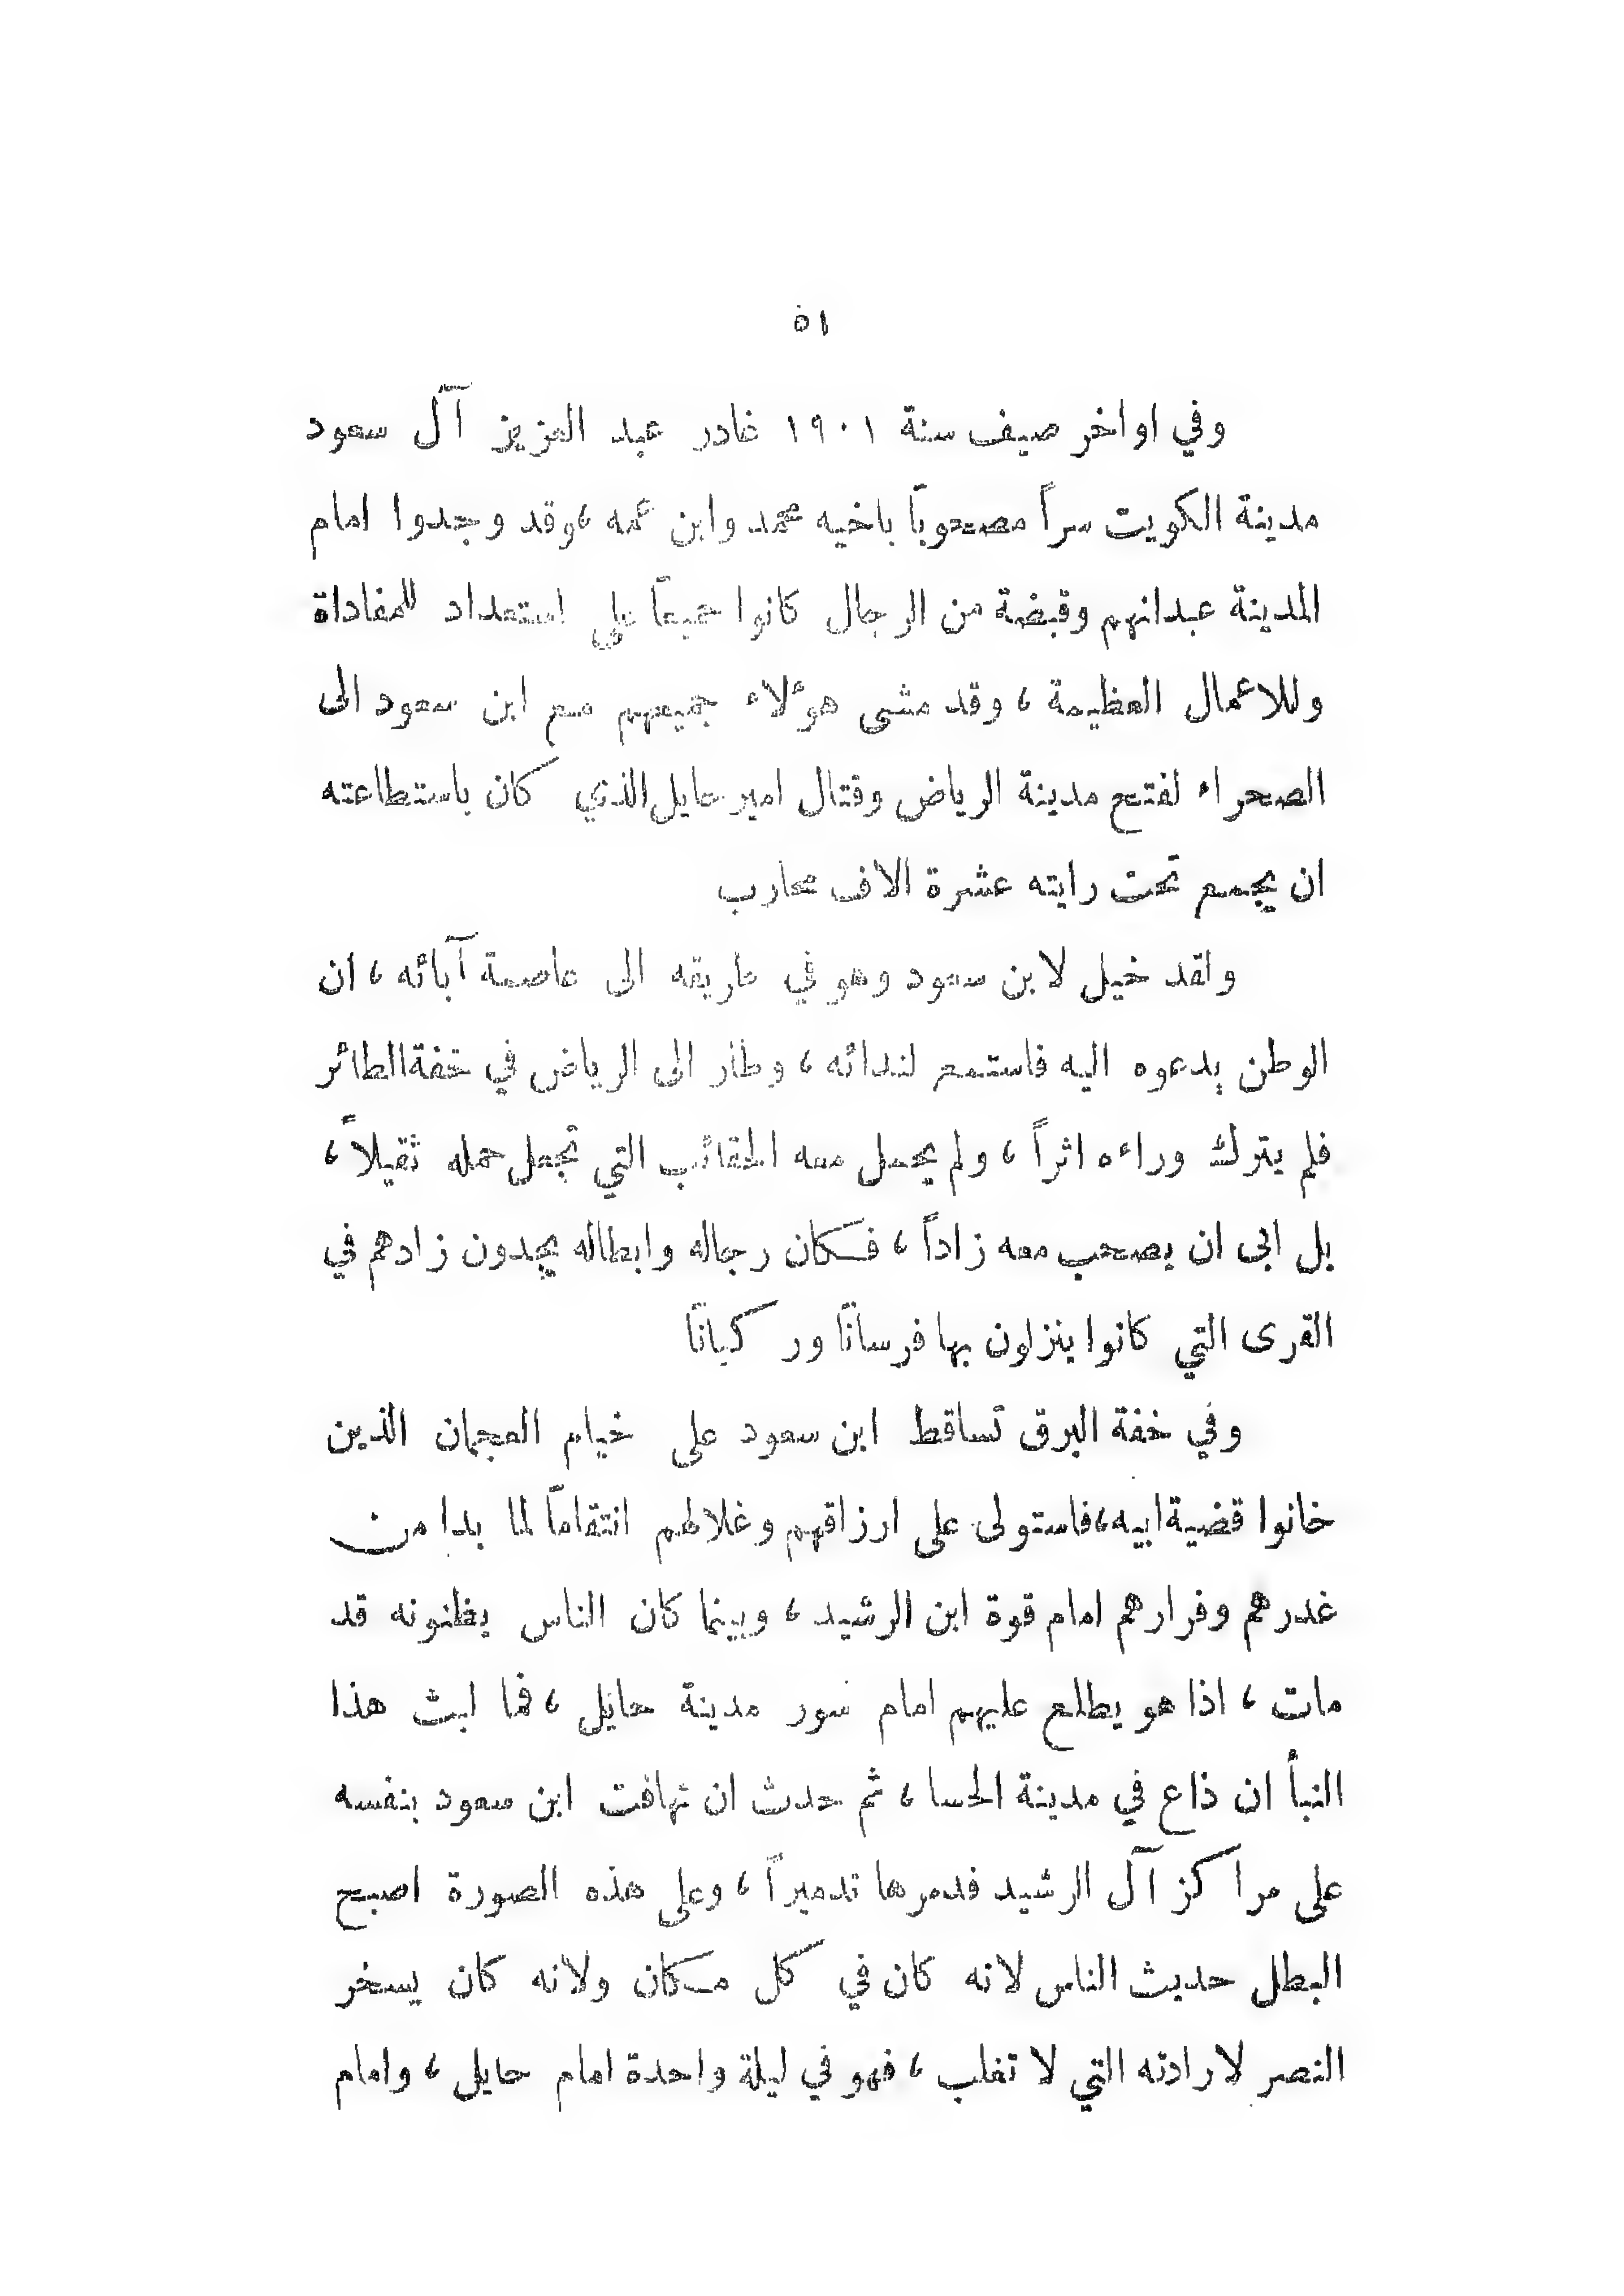 ٥١
وفي اواخر صيف سنة ١٩٠١ غادر عبد العزيز آل سعود
مدينة الكويت سراً مصحوباً باخيه محمد وابن عمه ، وقد وجدوا امام
المدينة عبدانهم وقبضة من الرجال كانوا جميعاً على استعداد للمفاداة
وللاعمال العظيمة ، وقد مشى هؤلاء جميعهم مع ابن سعود الى
الصحراء لفتح مدينة الرياض وقتال امير حايل الذي كان باستطاعته
ان يجمع تحت رايته عشرة الاف محارب
ولقد خيل لابن سعود وهو في طريقه الى عاصمة آبائه ، ان
الوطن يدعوه اليه فاستمع لندائه ، وطار الى الرياض في خفة الطائر
فلم يترك وراءه اثراً ، ولم يحمل معه الحقائب التي تجعل حمله ثقيلاً ،
بل ابى ان يصحب معه زاداً ، فكان رجاله وابطاله يجدون زادهم في
القرى التي كانوا ينزلون بها فرساناً وركباناً
وفي خفة البرق تساقط ابن سعود على خيام العجمان الذين
خانوا قضية ابيه ، فاستولى على ارزاقهم وغلالهم انتقاماً لما بدا من
غدرهم وفرارهم امام قوة ابن الرشيد ، وبينما كان الناس يظنونه قد
مات ، اذا هو يطلع عليهم امام سور مدينة حايل ، فما لبث هذا
النبأ ان ذاع في مدينة الحسا ، ثم حدث ان تهافت ابن سعود بنفسه
على مراكز آل الرشيد فدمرها تدميراً ، وعلى هذه الصورة اصبح
البطل حديث الناس لانه كان في كل مكان ولانه كان يسخر
النصر لارادته التي لا تغلب ، فهو في ليلة واحدة امام حايل ، وامام